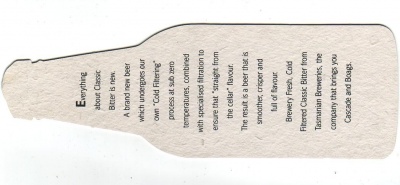 Everything
about Classic
Bitter is new.
A brand new beer
which undergoes our
own "Cold Filtering"
process at sub zero
temperatures, combined
with specialised filtration to
ensure that "straight from
the cellar" flavour.
The result is a beer that is
smoother, crisper and
full of flavour.
Brewery Fresh, Cold
Filtered Classic Bitter from
Tasmanian Breweries, the
company that brings you
Cascade and Boags.